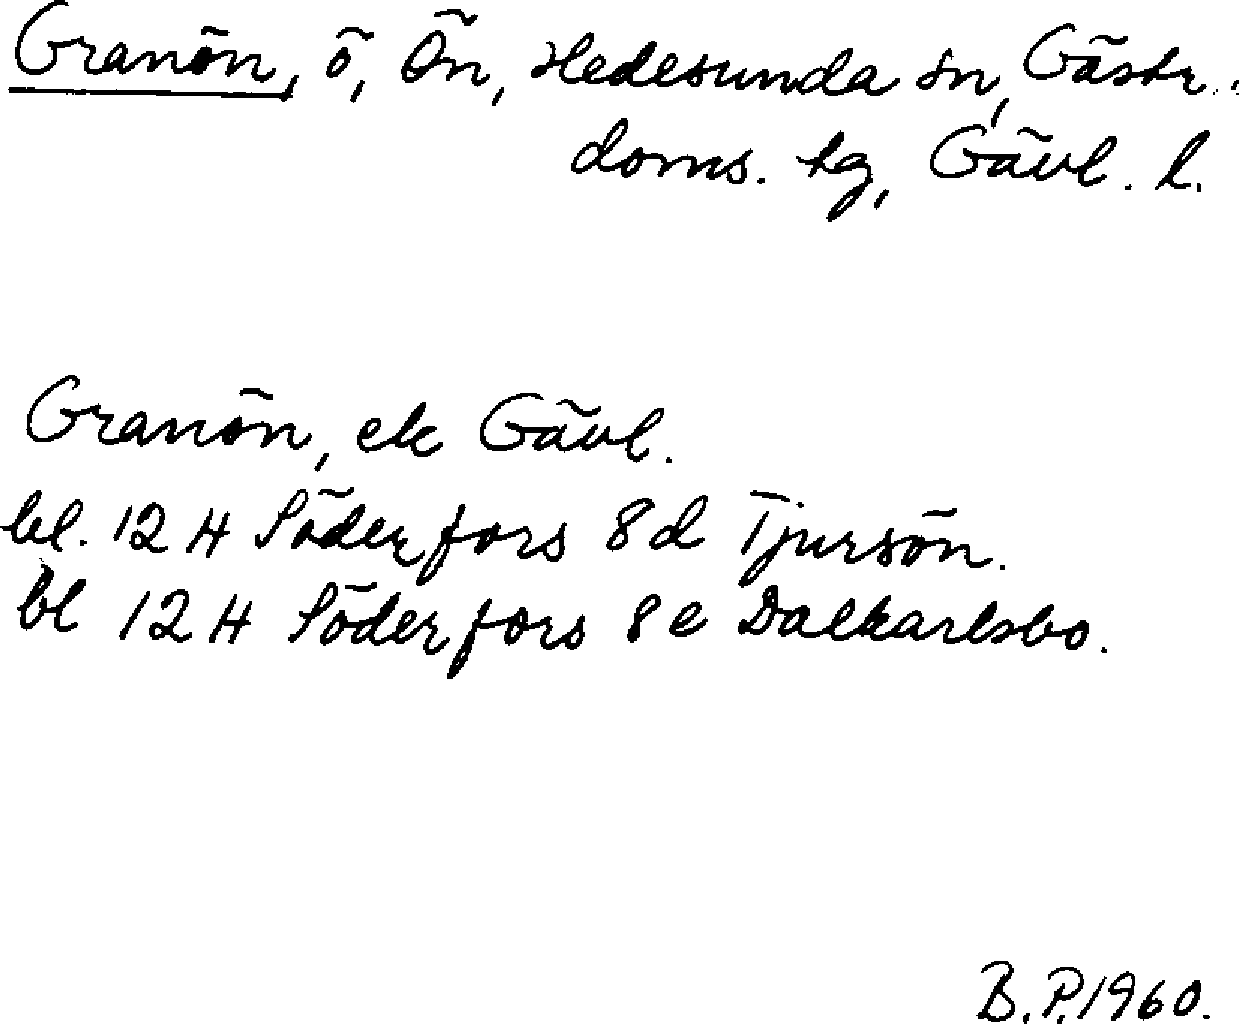 Granön, ö, Ön, Hedesunda sn, Gästr.
doms. tg, Gävl. l.
Granön, ek Gävl.
bl. 12 H Söderfors 8d Tjursön.
bl 12 H Söderfors 8e Dalkarlsbo.
B.P. 1960.